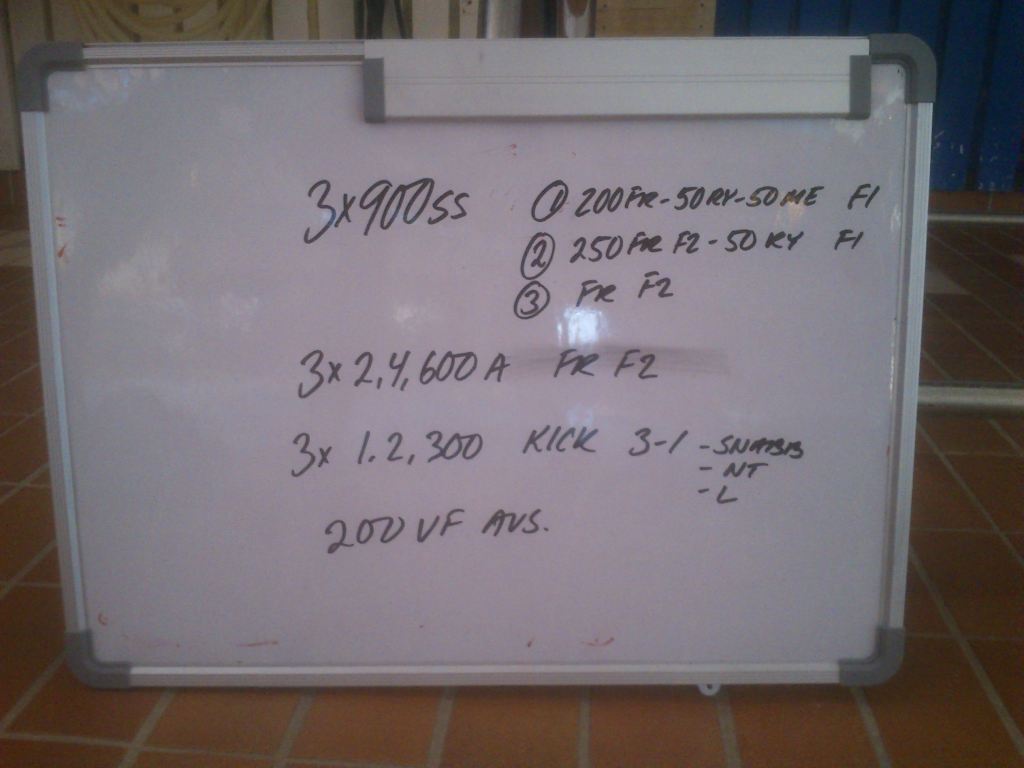 3x900SS ① 200FR-50RY-50ME F1
② 250FR F2-50RY F1
③ FR F2
3x2,4,600A FR F2
3x 1.2,300 KICK 3-1 -SNABB
- NT
- L
200 VF AVS.